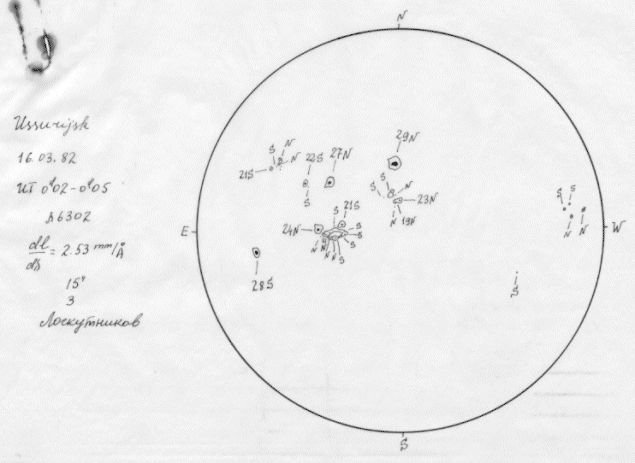 Ussurijsk
16.03.82
UT 0ʰ02-0ʰ05
λ6302
dl/dλ = 2.53 mm/Å
15"
3
Лоскутников
N
29N
N
S
N
21S
22S
27N
S
S
N
S
23N
N
19N
24N
21S
S
S
S
N
N
N
N
S
28S
E
W
S
S
N
N
S
S